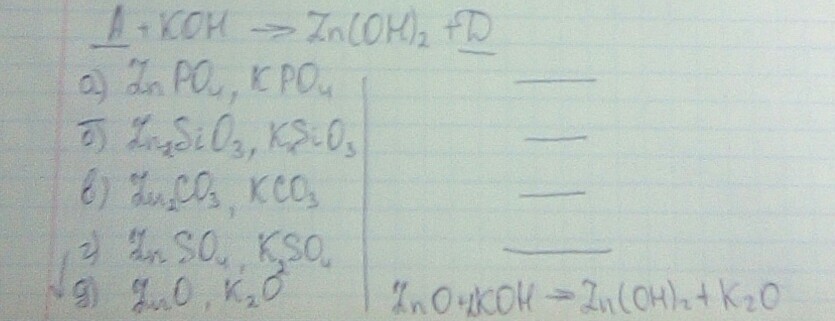 A + KOH → Zn(OH)₂ + D
а) ZnPO₄, KPO₄
б) Zn₂SiO₃, KSiO₃
в) Zn₂CO₃, KCO₃
г) ZnSO₄, K₂SO₄
д) ZnO, K₂O ZnO + 2KOH → Zn(OH)₂ + K₂O